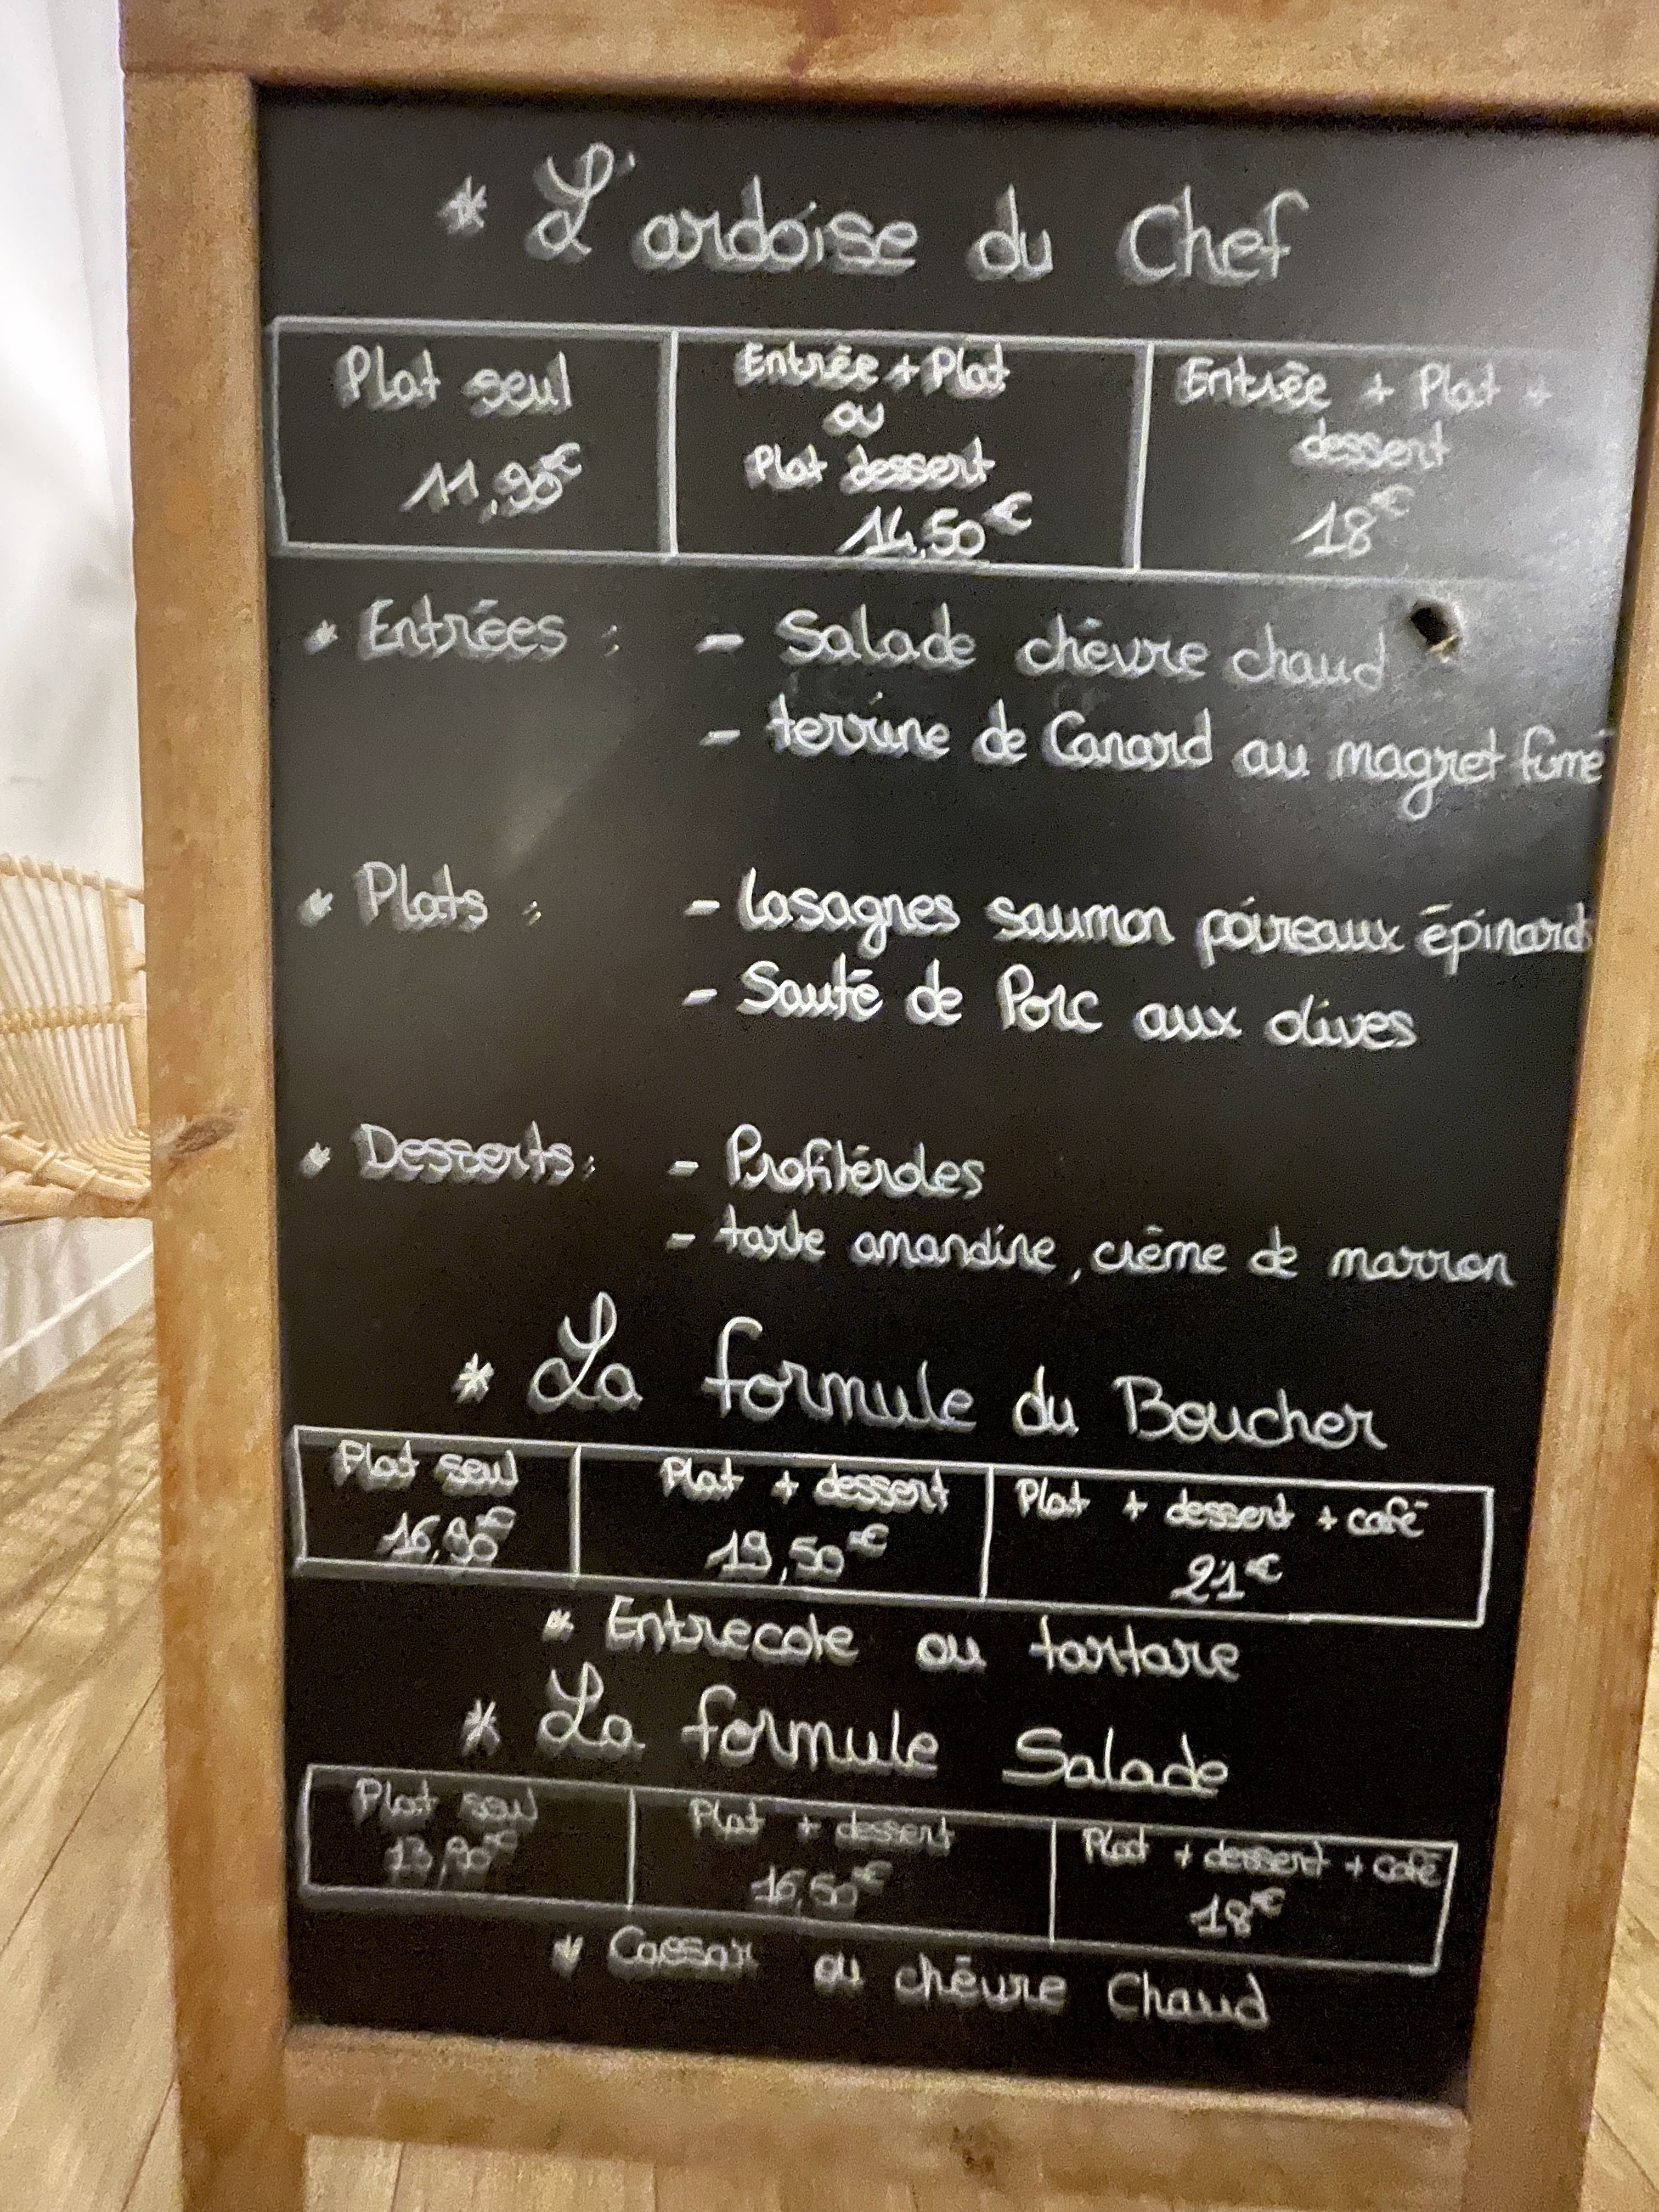 * L'ardoise du Chef
Plat seul
11,90€
Entrée + Plat
ou
Plat dessert
14,50€
Entrée + Plat +
dessert
18€
* Entrées : - Salade chèvre chaud
- terrine de Canard au magret fumé
* Plats : - lasagnes saumon poireaux épinards
- Sauté de Porc aux olives
* Desserts : - Profitéroles
- tarte amandine, crème de marron
* La formule du Boucher
Plat seul
16,90€
Plat + dessert
19,50€
Plat + dessert + café
21€
* Entrecote ou tartare
* La formule Salade
Plat seul
13,90€
Plat + dessert
16,50€
Plat + dessert + café
18€
* Caesar ou chèvre Chaud